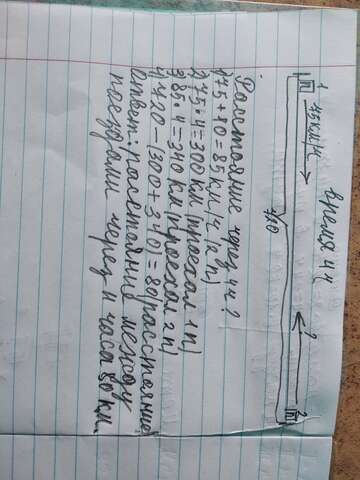 время 4 ч
1 75 км/ч ? 2
п п
720
Расстояние через 4 ч?
1) 75 + 10 = 85 км/ч (2 п)
2) 75 · 4 = 300 км (проехал 1 п)
3) 85 · 4 = 340 км (проехал 2 п)
4) 720 - (300 + 340) = 80 (расстояние)
Ответ: расстояние между
поездами через 4 часа 80 км.